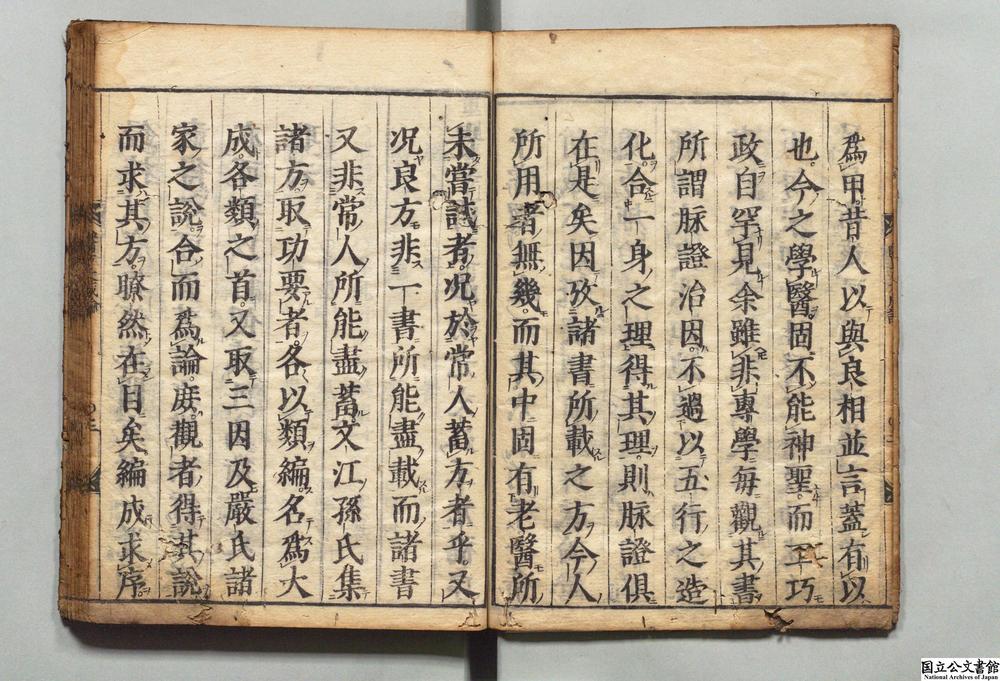 爲甲昔人以與良相並言蓋有以
也今之學醫固不能神聖而工巧
政自罕見余雖非專學每觀其書
所謂脉證治因不過以五行之造
化合一身之理得其理則脉證俱
在是矣因攷諸書所載之方今人
所用者無幾而其中固有老醫所
未嘗試者况於常人蓄方者乎又
况良方非一書所能盡載而諸書
又非常人所能盡蓄文江孫氏集
諸方取功要者各以類編名爲大
成各類之首又取三因及嚴氏諸
家之說合而爲論庻觀者得其說
而求其方瞭然在目矣編成求序
国立公文書館
National Archives of Japan